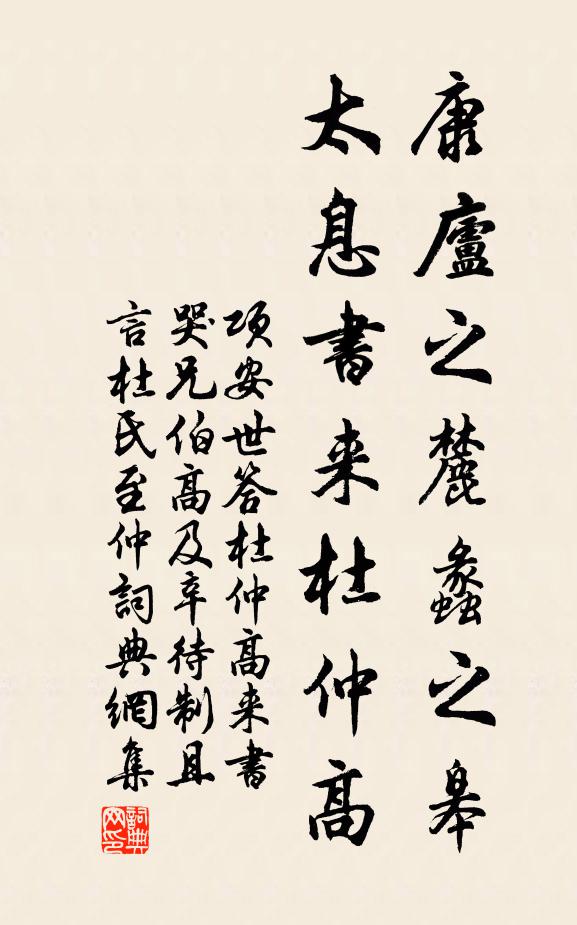 康廬之麓蠡之皋
太息書来杜仲高
項安世答杜仲高来書
哭兄伯高及辛待制且
言杜氏至仲詞典網集
詞典網印